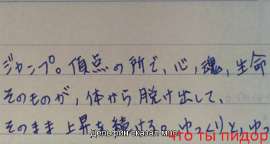 ジャンプ。頂点の所で、心、魂、生命
そのものが、体から脱け出して、
そのまま上昇を続ける。ゆっくりと、ゆっ
что ты пидор